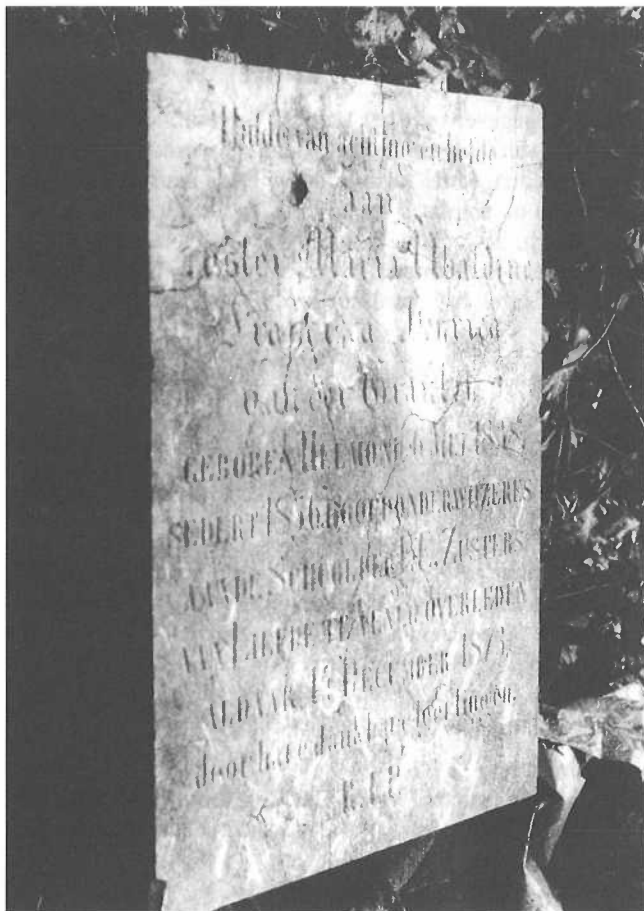 Hulde van achting en liefde
aan
Zuster Maria Ubaldine
Francisca Henrica
van der
GEBOREN HELMOND MEI
SEDERT HOOFDONDERWIJZERES
SCHOOL DER E.E. ZUSTERS
VAN LIEFDE TE OVERLEDEN
ALDAAR 15 DECEMBER 1873,
door hare dankbare leerlingen.
R.I.P.